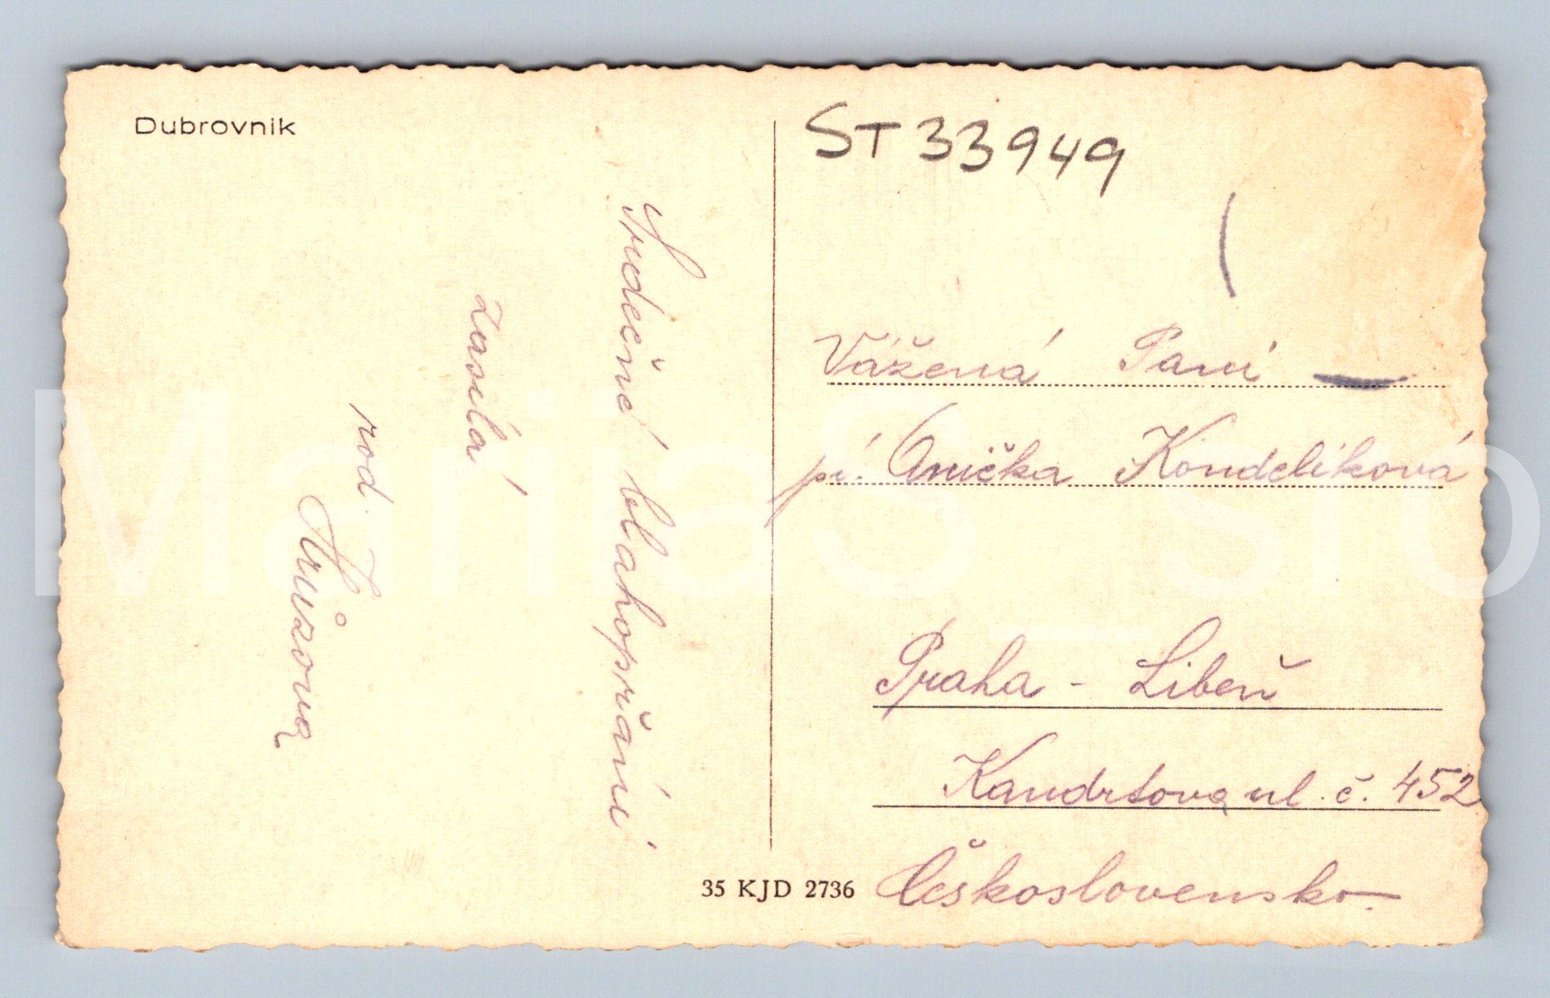 Dubrovnik
ST 33949
Srdečné blahopřání
zasílá
rod.
Hrůzova
Vážená Paní
pí. Anička Kondelíková
Praha - Libeň
Kandrtova ul. č. 452
Československo.
35 KJD 2736